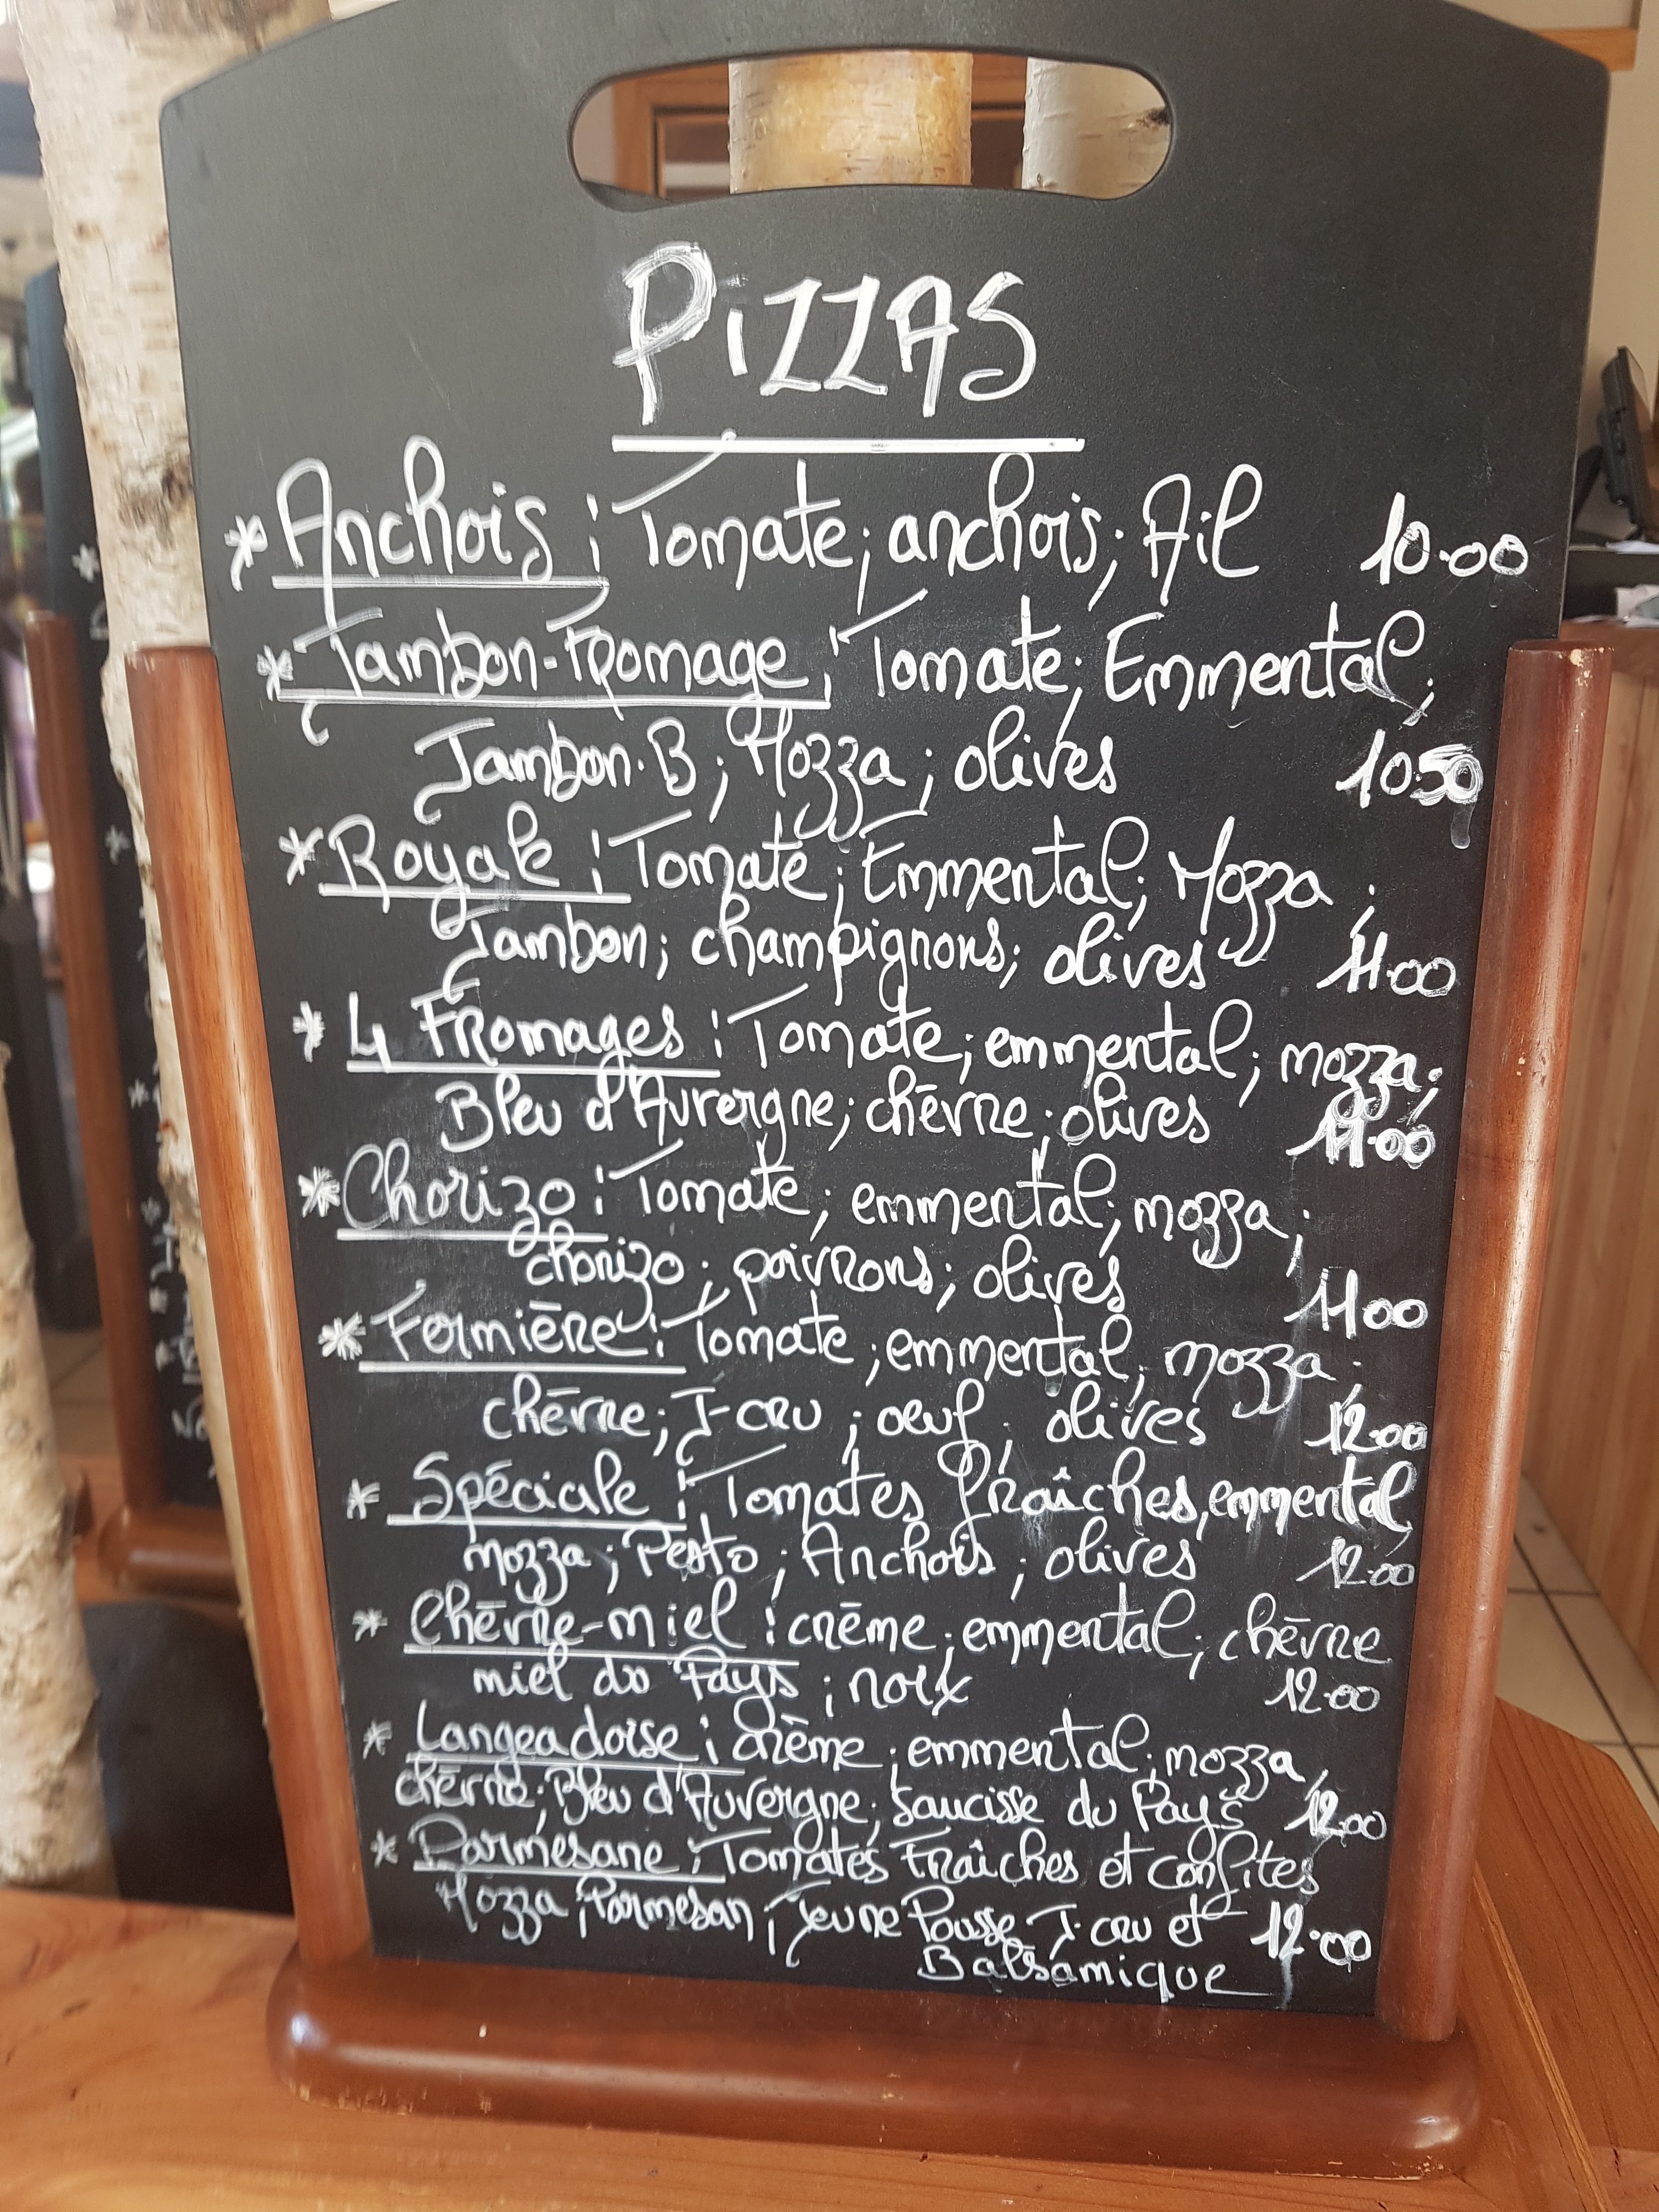 PIZZAS
* Anchois : Tomate ; anchois ; Ail 10.00
* Jambon-Fromage : Tomate ; Emmental ;
Jambon.B ; Mozza ; olives 10.50
* Royale : Tomate ; Emmental ; Mozza ;
Jambon ; champignons ; olives 11.00
* 4 Fromages : Tomate ; emmental ; mozza ;
Bleu d'Auvergne ; chèvre ; olives 11.00
* Chorizo : Tomate ; emmental ; mozza ;
chorizo ; poivrons ; olives 11.00
* Fermière : Tomate ; emmental ; mozza ;
chèvre ; J-cru ; oeuf ; olives 12.00
* Spéciale : Tomates fraîches, emmental,
mozza ; Pesto ; Anchois ; olives 12.00
* Chèvre-miel : crème ; emmental ; chèvre
miel du Pays ; noix 12.00
* Langeadoise : crème ; emmental ; mozza,
chèvre ; Bleu d'Auvergne ; Saucisse du Pays 12.00
* Parmesane : Tomates Fraîches et confites
Mozza ; Parmesan ; Jeune Pousse J-cru et 12.00
Balsamique